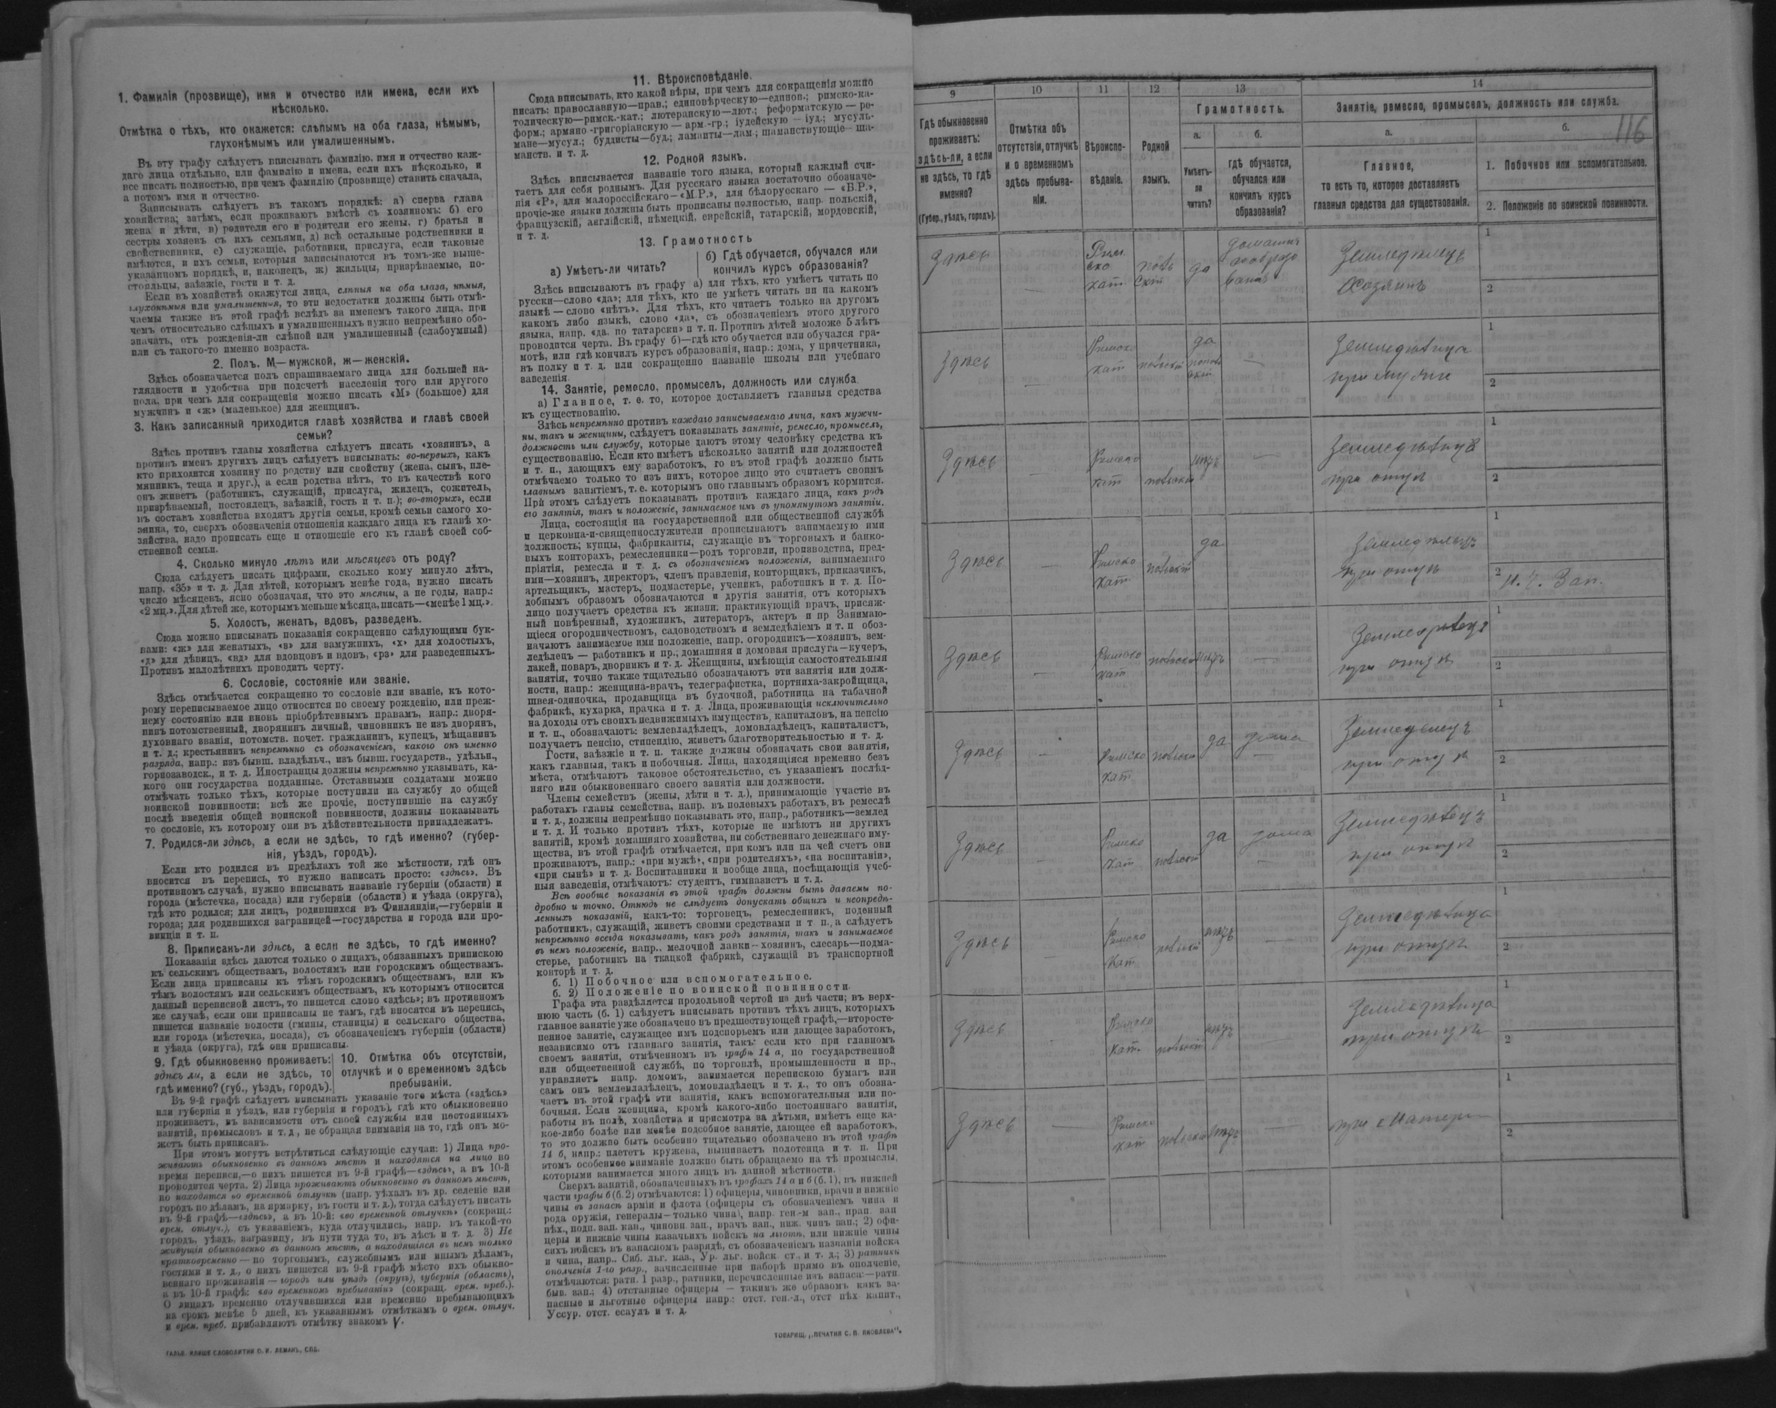 1. Фамилія (прозвище), имя и отчество или имена, если ихъ
нѣсколько.
Отмѣтка о тѣхъ, кто окажется: слѣпымъ на оба глаза, нѣмымъ,
глухонѣмымъ или умалишеннымъ.
Въ эту графу слѣдуетъ вписывать фамилію, имя и отчество каж-
даго лица отдѣльно, или фамилію и имена, если ихъ нѣсколько, и
все писать полностью, при чемъ фамилію (прозвище) ставить сначала,
а потомъ имя и отчество.
Записывать слѣдуетъ въ такомъ порядкѣ: а) сперва глава
хозяйства; затѣмъ, если проживаютъ вмѣстѣ съ хозяиномъ: б) его
жена и дѣти, в) родители его и родители его жены, г) братья и
сестры хозяевъ съ ихъ семьями, д) всѣ остальные родственники и
свойственники, е) служащіе, работники, прислуга, если таковые
имѣются, и ихъ семьи, которыя записываются въ томъ-же выше-
указанномъ порядкѣ, и, наконецъ, ж) жильцы, призрѣваемые, по-
стояльцы, заѣзжіе, гости и т. д.
Если въ хозяйствѣ окажутся лица, слѣпыя на оба глаза, нѣмыя,
глухонѣмыя или умалишенныя, то эти недостатки должны быть отмѣ-
чаемы также въ этой графѣ вслѣдъ за именемъ такого лица, при
чемъ относительно слѣпыхъ и умалишенныхъ нужно непремѣнно обо-
значать, отъ рожденія-ли слѣпой или умалишенный (слабоумный)
или съ такого-то именно возраста.
2. Полъ. М—мужской, ж—женскій.
Здѣсь обозначается полъ спрашиваемаго лица для большей на-
глядности и удобства при подсчетѣ населенія того или другого
пола, при чемъ для сокращенія можно писать «М» (большое) для
мужчинъ и «ж» (маленькое) для женщинъ.
3. Какъ записанный приходится главѣ хозяйства и главѣ своей
семьи?
Здѣсь противъ главы хозяйства слѣдуетъ писать «хозяинъ», а
противъ именъ другихъ лицъ слѣдуетъ вписывать: во-первыхъ, какъ
кто приходится хозяину по родству или свойству (жена, сынъ, пле-
мянникъ, теща и друг.), а если родства нѣтъ, то въ качествѣ кого
онъ живетъ (работникъ, служащій, прислуга, жилецъ, сожитель,
призрѣваемый, постоялецъ, заѣзжій, гость и т. п.); во-вторыхъ, если
въ составъ хозяйства входятъ другія семьи, кромѣ семьи самого хо-
зяина, то, сверхъ обозначенія отношенія каждаго лица къ главѣ хо-
зяйства, надо прописать еще и отношеніе его къ главѣ своей соб-
ственной семьи.
4. Сколько минуло лѣтъ или мѣсяцевъ отъ роду?
Сюда слѣдуетъ писать цифрами, сколько кому минуло лѣтъ,
напр. «35» и т. д. Для дѣтей, которымъ менѣе года, нужно писать
число мѣсяцевъ, ясно обозначая, что это мѣсяцы, а не годы, напр.:
«2 мц.». Для дѣтей же, которымъ меньше мѣсяца, писать—«менѣе 1 мц.».
5. Холостъ, женатъ, вдовъ, разведенъ.
Сюда можно вписывать показанія сокращенно слѣдующими бук-
вами: «ж» для женатыхъ, «з» для замужнихъ, «х» для холостыхъ,
«д» для дѣвицъ, «вд» для вдовцовъ и вдовъ, «рз» для разведенныхъ.
Противъ малолѣтнихъ проводить черту.
6. Сословіе, состояніе или званіе.
Здѣсь отмѣчается сокращенно то сословіе или званіе, къ кото-
рому переписываемое лицо относится по своему рожденію, или преж-
нему состоянію или вновь пріобрѣтеннымъ правамъ, напр.: дворя-
нинъ потомственный, дворянинъ личный, чиновникъ не изъ дворянъ,
духовнаго званія, потомств. почет. гражданинъ, купецъ, мѣщанинъ
и т. д.; крестьянинъ непремѣнно съ обозначеніемъ, какого онъ именно
разряда, напр.: изъ бывш. владѣльч., изъ бывш. государств., удѣльн.,
горнозаводск., и т. д. Иностранцы должны непремѣнно указывать, ка-
кого они государства подданные. Отставными солдатами можно
отмѣчать только тѣхъ, которые поступили на службу до общей
воинской повинности; всѣ же прочіе, поступившіе на службу
послѣ введенія общей воинской повинности, должны показывать
то сословіе, къ которому они въ дѣйствительности принадлежатъ.
7. Родился-ли здѣсь, а если не здѣсь, то гдѣ именно? (губер-
нія, уѣздъ, городъ).
Если кто родился въ предѣлахъ той же мѣстности, гдѣ онъ
вносится въ перепись, то нужно написать просто: «здѣсь». Въ
противномъ случаѣ, нужно вписывать названіе губерніи (области) и
города (мѣстечка, посада) или губерніи (области) и уѣзда (округа),
гдѣ кто родился; для лицъ, родившихся въ Финляндіи,—губерніи и
города; для родившихся заграницей—государства и города или про-
винціи и т. п.
8. Приписанъ-ли здѣсь, а если не здѣсь, то гдѣ именно?
Показанія здѣсь даются только о лицахъ, обязанныхъ припискою
къ сельскимъ обществамъ, волостямъ или городскимъ обществамъ.
Если лица приписаны къ тѣмъ городскимъ обществамъ, или къ
тѣмъ волостямъ или сельскимъ обществамъ, къ которымъ относится
данный переписной листъ, то пишется слово «здѣсь»; въ противномъ
же случаѣ, если они приписаны не тамъ, гдѣ вносятся въ перепись,
пишется названіе волости (гмины, станицы) и сельскаго общества,
или города (мѣстечка, посада), съ обозначеніемъ губерніи (области)
и уѣзда (округа), гдѣ они приписаны.
9. Гдѣ обыкновенно проживаетъ:
здѣсь ли, а если не здѣсь, то
гдѣ именно? (губ., уѣздъ, городъ).
10. Отмѣтка объ отсутствіи,
отлучкѣ и о временномъ здѣсь
пребываніи.
Въ 9-й графѣ слѣдуетъ вписывать указаніе того мѣста («здѣсь»
или губернія и уѣздъ, или губернія и городъ), гдѣ кто обыкновенно
проживаетъ, въ зависимости отъ своей службы или постоянныхъ
занятій, промысловъ и т. д., не обращая вниманія на то, гдѣ онъ мо-
жетъ быть приписанъ.
При этомъ могутъ встрѣтиться слѣдующіе случаи: 1) Лица про-
живаютъ обыкновенно въ данномъ мѣстѣ и находятся на лицо во
время переписи,—о нихъ пишется въ 9-й графѣ—«здѣсь», а въ 10-й
проводится черта. 2) Лица проживаютъ обыкновенно въ данномъ мѣстѣ,
но находятся во временной отлучкѣ (напр. уѣхалъ въ др. селеніе или
городъ по дѣламъ, на ярмарку, въ гости и т. д.), тогда слѣдуетъ писать
въ 9-й графѣ—«здѣсь», а въ 10-й: «во временной отлучкѣ» (сокращ.:
врем. отлуч.), съ указаніемъ, куда отлучились, напр. въ такой-то
городъ, уѣздъ, заграницу, въ пути туда то, въ лѣсъ и т. д. 3) Не
живущія обыкновенно въ данномъ мѣстѣ, а находящіяся въ немъ только
кратковременно — по торговымъ, служебнымъ или инымъ дѣламъ,
гостями и т. д., о нихъ пишется въ 9-й графѣ мѣсто ихъ обыкно-
веннаго проживанія — городъ или уѣздъ (округъ), губернія (область),
а въ 10-й графѣ: «во временномъ пребываніи» (сокращ. врем. преб.).
О лицахъ временно отлучившихся или временно пребывающихъ
на срокъ менѣе 5 дней, къ указаннымъ отмѣткамъ о врем. отлуч.
и врем. преб. прибавляютъ отмѣтку знакомъ V.
11. Вѣроисповѣданіе.
Сюда вписывать, кто какой вѣры, при чемъ для сокращенія можно
писать: православную—прав.; единовѣрческую—единов.; римско-ка-
толическую—римск.-кат.; лютеранскую—лют.; реформатскую — ре-
форм.; армяно-григоріанскую — арм.-гр.; іудейскую — іуд.; мусуль-
мане—мусул.; буддисты—буд.; ламаиты—лам.; шаманствующіе—ша-
манств. и т. д.
12. Родной языкъ.
Здѣсь вписывается названіе того языка, который каждый счи-
таетъ для себя роднымъ. Для русскаго языка достаточно обозначе-
нія «Р», для малороссійскаго—«М.Р.», для бѣлорусскаго — «Б.Р.»,
прочіе-же языки должны быть прописаны полностью, напр. польскій,
французскій, англійскій, нѣмецкій, еврейскій, татарскій, мордовскій,
и т. д.
13. Грамотность
а) Умѣетъ-ли читать?
б) Гдѣ обучается, обучался или
кончилъ курсъ образованія?
Здѣсь вписываютъ въ графу а) для тѣхъ, кто умѣетъ читать по
русски—слово «да»; для тѣхъ, кто не умѣетъ читать ни на какомъ
языкѣ — слово «нѣтъ». Для тѣхъ, кто читаетъ только на другомъ
какомъ либо языкѣ, слово «да», съ обозначеніемъ этого другого
языка, напр. «да, по татарски» и т. п. Противъ дѣтей моложе 5 лѣтъ
проводится черта. Въ графу б)—гдѣ кто обучается или обучался гра-
мотѣ, или гдѣ кончилъ курсъ образованія, напр.: дома, у причетника,
въ полку и т. д. или сокращенно названіе школы или учебнаго
заведенія.
14. Занятіе, ремесло, промыселъ, должность или служба.
а) Главное, т. е. то, которое доставляетъ главныя средства
къ существованію.
Здѣсь непремѣнно противъ каждаго записываемаго лица, какъ мужчи-
ны, такъ и женщины, слѣдуетъ показывать занятіе, ремесло, промыселъ,
должность или службу, которые даютъ этому человѣку средства къ
существованію. Если кто имѣетъ нѣсколько занятій или должностей
и т. п., дающихъ ему заработокъ, то въ этой графѣ должно быть
отмѣчаемо только то изъ нихъ, которое лицо это считаетъ своимъ
главнымъ занятіемъ, т. е. которымъ оно главнымъ образомъ кормится.
При этомъ слѣдуетъ показывать противъ каждаго лица, какъ родъ
его занятія, такъ и положеніе, занимаемое имъ въ упомянутомъ занятіи.
Лица, состоящія на государственной или общественной службѣ
и церковно-и-священнослужители прописываютъ занимаемую ими
должность; купцы, фабриканты, служащіе въ торговыхъ и банко-
выхъ конторахъ, ремесленники—родъ торговли, производства, пред-
пріятія, ремесла и т. д. съ обозначеніемъ положенія, занимаемаго
ими—хозяинъ, директоръ, членъ правленія, конторщикъ, приказчикъ,
артельщикъ, мастеръ, подмастерье, ученикъ, работникъ и т. д. По-
добнымъ образомъ обозначаются и другія занятія, отъ которыхъ
лицо получаетъ средства къ жизни: практикующій врачъ, присяж-
ный повѣренный, художникъ, литераторъ, актеръ и пр. Занимаю-
щіеся огородничествомъ, садоводствомъ и земледѣліемъ и т. п. обоз-
начаютъ занимаемое ими положеніе, напр. огородникъ—хозяинъ, зем-
ледѣлецъ — работникъ и пр.; домашняя и домовая прислуга — кучеръ,
лакей, поваръ, дворникъ и т. д. Женщины, имѣющія самостоятельныя
занятія, точно также тщательно обозначаютъ эти занятія или долж-
ности, напр.: женщина-врачъ, телеграфистка, портниха-закройщица,
швея-одиночка, продавщица въ булочной, работница на табачной
фабрикѣ, кухарка, прачка и т. д. Лица, проживающія исключительно
на доходы отъ своихъ недвижимыхъ имуществъ, капиталовъ, на пенсію
и т. п., обозначаютъ: землевладѣлецъ, домовладѣлецъ, капиталистъ,
получаетъ пенсію, стипендію, живетъ благотворительностью и т. д.
Гости, заѣзжіе и т. п. также должны обозначать свои занятія,
какъ главныя, такъ и побочныя. Лица, находящіяся временно безъ
мѣста, отмѣчаютъ таковое обстоятельство, съ указаніемъ послѣд-
няго или обыкновеннаго своего занятія или должности.
Члены семействъ (жены, дѣти и т. д.), принимающіе участіе въ
работахъ главы семейства, напр. въ полевыхъ работахъ, въ ремеслѣ
и т. д., должны непремѣнно показывать это, напр., работникъ—землед.
и т. д. И только противъ тѣхъ, которые не имѣютъ ни другихъ
занятій, кромѣ домашняго хозяйства, ни собственнаго денежнаго иму-
щества, въ этой графѣ отмѣчается, при комъ или на чей счетъ они
проживаютъ, напр.: «при мужѣ», «при родителяхъ», «на воспитаніи»,
«при сынѣ» и т. д. Воспитанники и вообще лица, посѣщающія учеб-
ныя заведенія, отмѣчаютъ: студентъ, гимназистъ и т. д.
Всѣ вообще показанія въ этой графѣ должны быть даваемы по-
дробно и точно. Отнюдь не слѣдуетъ допускать общихъ и неопредѣ-
ленныхъ показаній, какъ-то: торговецъ, ремесленникъ, поденный
работникъ, служащій, живетъ своими средствами и т. п., а слѣдуетъ
непремѣнно всегда показывать, какъ родъ занятія, такъ и занимаемое
въ немъ положеніе, напр.. мелочной лавки—хозяинъ, слесарь—подма-
стерье, работникъ на ткацкой фабрикѣ, служащій въ транспортной
конторѣ и т. д.
б. 1) Побочное или вспомогательное.
б. 2) Положеніе по воинской повинности
Графа эта раздѣляется продольной чертой на двѣ части; въ верх-
нюю часть (б. 1) слѣдуетъ вписывать противъ тѣхъ лицъ, которыхъ
главное занятіе уже обозначено въ предшествующей графѣ,—второсте-
пенное занятіе, служащее имъ подспорьемъ или дающее заработокъ,
независимо отъ главнаго занятія, такъ: если кто при главномъ
своемъ занятіи, отмѣченномъ въ графѣ 14 а, по государственной
или общественной службѣ, по торговлѣ, промышленности и пр.,
управляетъ напр. домомъ, занимается перепискою бумагъ или
самъ онъ землевладѣлецъ, домовладѣлецъ и т. д., то онъ обозна-
чаетъ въ этой графѣ эти занятія, какъ вспомогательныя или по-
бочныя. Если женщина, кромѣ какого-либо постояннаго занятія,
работы въ полѣ, хозяйства и присмотра за дѣтьми, имѣетъ еще ка-
кое-либо болѣе или менѣе подсобное занятіе, дающее ей заработокъ,
то это должно быть особенно тщательно обозначено въ этой графѣ
14 б, напр.: плететъ кружева, вышиваетъ полотенца и т. п. При
этомъ особенное вниманіе должно быть обращаемо на тѣ промыслы,
которыми занимается много лицъ въ данной мѣстности.
Сверхъ занятій, обозначенныхъ въ графахъ 14 а и б (б. 1), въ нижней
части графы б (б. 2) отмѣчаются: 1) офицеры, чиновники, врачи и нижніе
чины въ запасѣ арміи и флота (офицеры съ обозначеніемъ чина и
рода оружія, генералы—только чина), напр. ген-м. зап., прап. зап.
пѣх., подп. зап. кав., чиновн. зап., врачъ зап., ниж. чинъ зап.; 2) офи-
церы и нижніе чины казачьихъ войскъ на льготѣ, или нижніе чины
сихъ войскъ въ запасномъ разрядѣ, съ обозначеніемъ названія войска
и чина, напр.. Сиб. льг. каз., Ур. льг. войск. ст. и т. д.; 3) ратники
ополченія 1-го разр., зачисленные при наборѣ прямо въ ополченіе,
отмѣчаются: ратн. 1 разр., ратники, перечисленные изъ запаса:—ратн.
быв. зап.; 4) отставные офицеры — такимъ же образомъ какъ за-
пасные и льготные офицеры напр.: отст. ген.-л., отст. пѣх. капит.,
Уссур. отст. есаулъ и т. д.
ТОВАРИЩ. „ПЕЧАТНЯ С. П. ЯКОВЛЕВА“.
ГАЛЬВ. КЛИШЕ СЛОВОЛИТНИ О. И. ЛЕМАНЪ, СПБ.
9
10
11
12
13
14
Гдѣ обыкновенно
проживаетъ:
здѣсь-ли, а если
не здѣсь, то гдѣ
именно?
(Губер., уѣздъ, городъ).
Отмѣтка объ
отсутствіи, отлучкѣ
и о временномъ
здѣсь пребыва-
ніи.
Вѣроиспо-
вѣданіе.
Родной
языкъ.
Грамотность.
а.
б.
Умѣетъ-
ли
читать?
гдѣ обучается,
обучался или
кончилъ курсъ
образованія?
Занятія, ремесло, промыселъ, должность или служба.
а.
б.
116
Главное,
то есть то, которое доставляетъ
главныя средства для существованія.
1. Побочное или вспомогательное.
2. Положеніе по воинской повинности.
Здѣсь — Римско кат да Земледѣлецъ 1
Хозяинъ 2
Здѣсь — Римско кат да — Земледѣлица 1
при мужѣ 2
Здѣсь — Римско кат нѣтъ — Земледѣлица 1
при отцѣ 2
Здѣсь — Римско кат да Земледѣлецъ 1
при отцѣ 2 н. ч. Зап.
Здѣсь — Римско кат нѣтъ — Земледѣлецъ 1
при отцѣ 2
Здѣсь — Римско кат да дома Земледѣлецъ 1
при отцѣ 2
Здѣсь — Римско кат да дома Земледѣлецъ 1
при отцѣ 2
Здѣсь — Римско кат нѣтъ — Земледѣлица 1
при отцѣ 2
Здѣсь — Римско кат нѣтъ — Земледѣлица 1
при отцѣ 2
Здѣсь — Римско кат нѣтъ — при матери 1
2